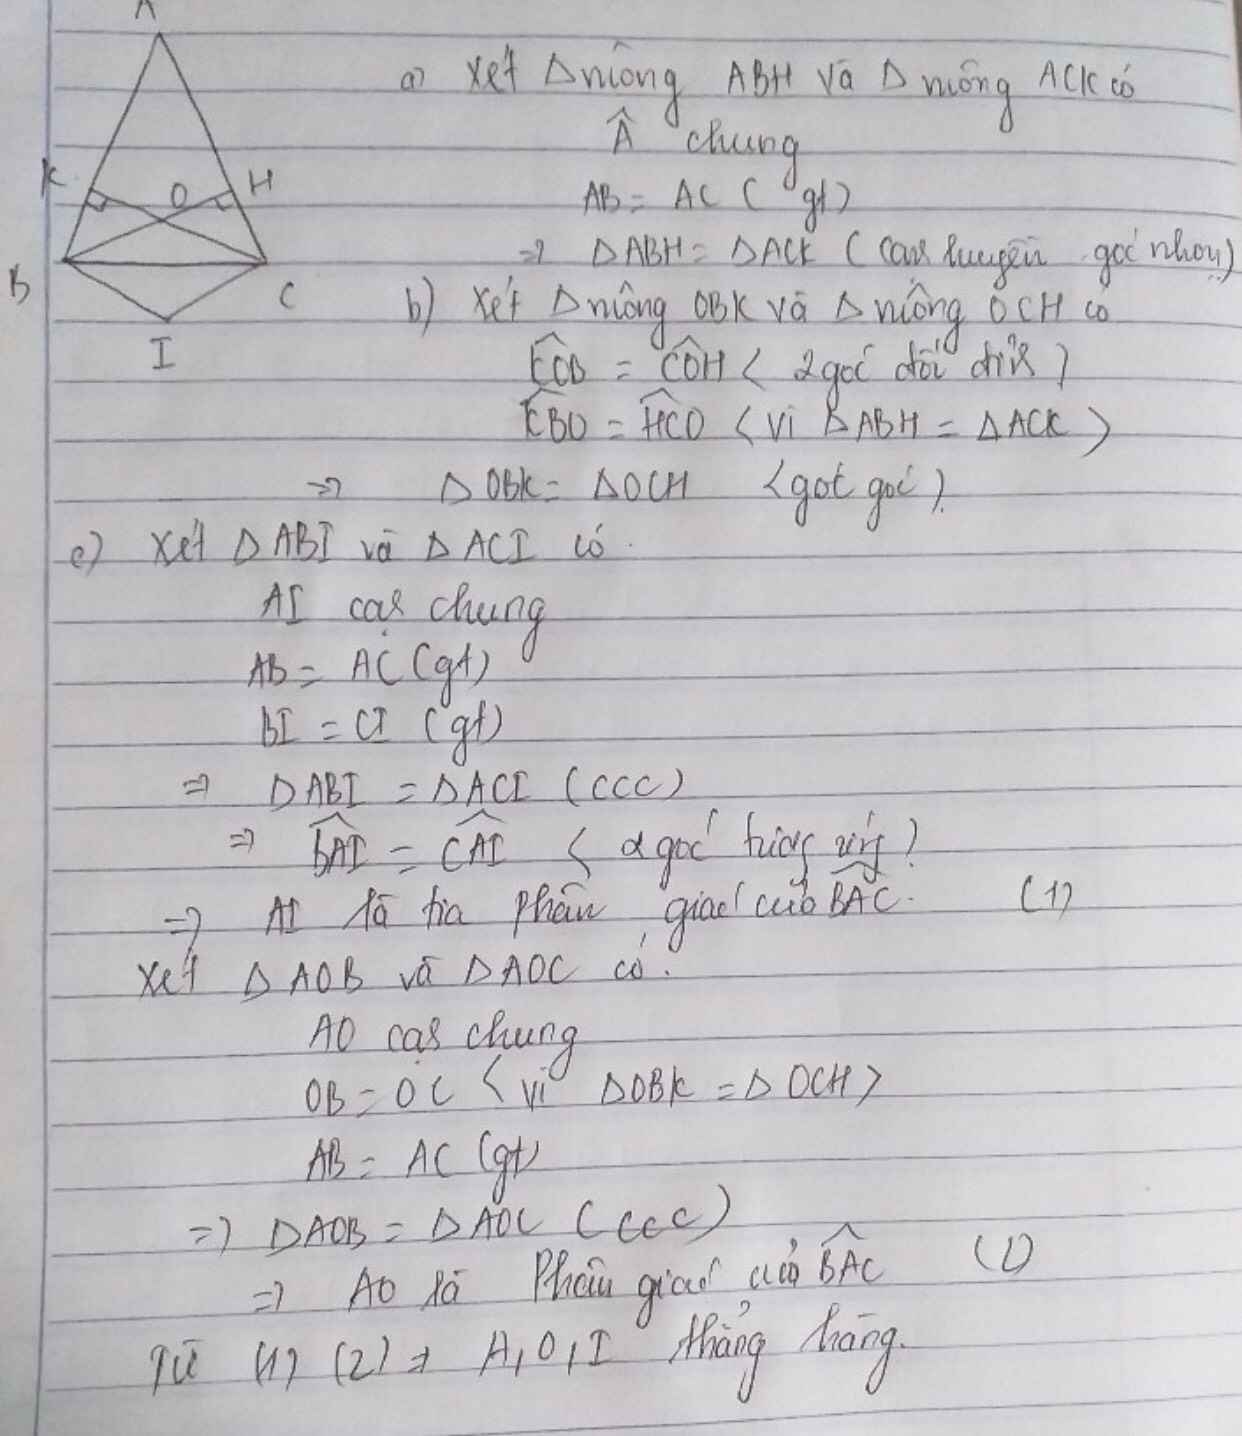 A
K
O
H
B
C
I
a) Xét Δ vuông ABH và Δ vuông ACK có
Â chung
AB = AC ( gt)
=> ΔABH = ΔACK ( cạnh huyền góc nhọn)
b) Xét Δ vuông OBK và Δ vuông OCH có
KOB = COH < 2 góc đối đỉnh )
KBO = HCO < Vì ΔABH = ΔACK >
=> Δ OBK = ΔOCH < góc)
c) Xét ΔABI và ΔACI có
AI cạnh chung
AB = AC (gt)
BI = CI (gt)
=> ΔABI = ΔACI (ccc)
=> BAI = CAI < 2 góc tương ứng )
=> AI là tia phân giác của BAC. (1)
Xét ΔAOB và ΔAOC có.
AO cạnh chung
OB = OC < vì ΔOBK = ΔOCH >
AB = AC (gt)
=> ΔAOB = ΔAOC (ccc)
=> AO là Phân giác của BAC (2)
Từ (1) (2) => A, O, I thẳng hàng.